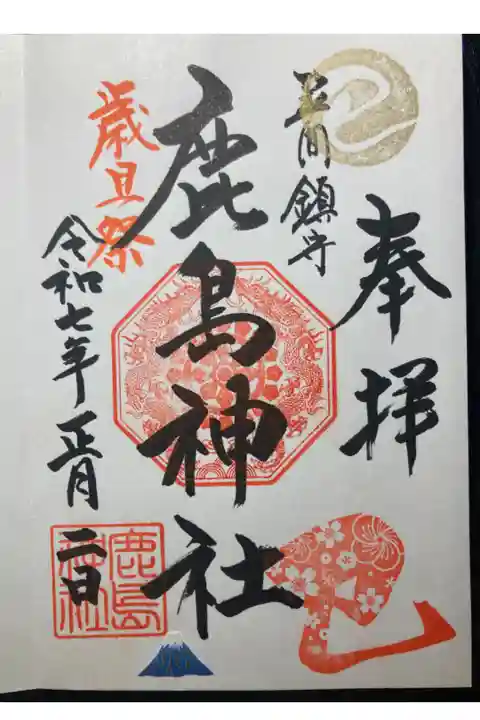 奉拝
鎮守
鹿島神社
歳旦祭
令和七年正月二日
鹿島
神社
巳